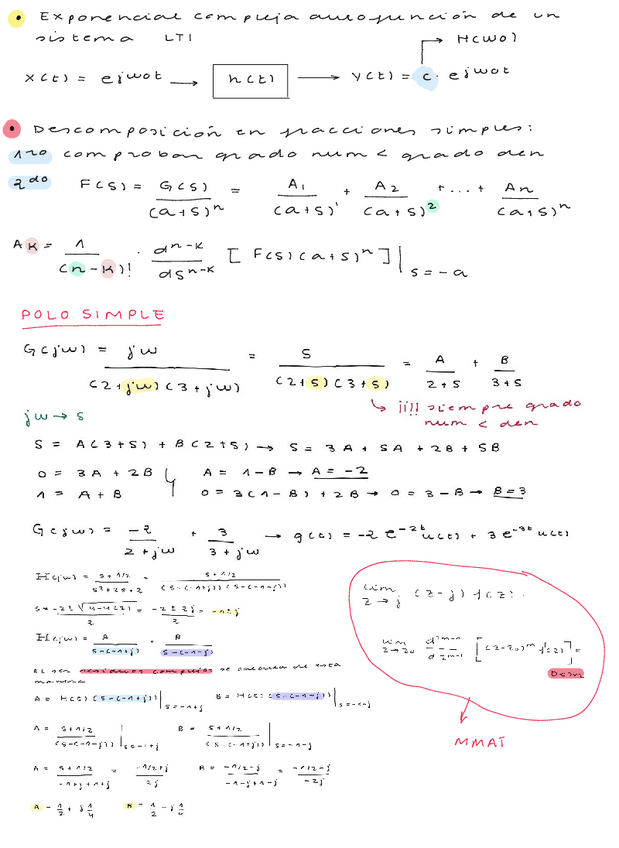 • Exponencial compleja autofunción de un
sistema LTI
H(w0)
x(t) = e^jwot → h(t) → y(t) = c. e^jwot
• Descomposición en fracciones simples:
1ro comprobar grado num < grado den
2do F(s) = G(s)/(a+s)^n = A1/(a+s)^1 + A2/(a+s)^2 + ... + An/(a+s)^n
Ak = 1/(n-k)! · d^n-k/ds^n-k [F(s)(a+s)^n] |s=-a
POLO SIMPLE
G(jw) = jw/(2+jw)(3+jw) = s/(2+s)(3+s) = A/2+s + B/3+s
↳ ¡¡!! siempre grado
num < den
jw → s
s = A(3+s) + B(2+s) → s = 3A + sA + 2B + sB
0 = 3A + 2B A = 1-B → A = -2
1 = A + B 0 = 3(1-B) + 2B → 0 = 3-B → B=3
G(jw) = -2/2+jw + 3/3+jw → g(t) = -2 e^-2t u(t) + 3 e^-3t u(t)
H(jw) = s+1/2/s²+2s+2 = s+1/2/(s-(-1+j))(s-(-1-j))
lim z→j (z-j) f(z).
s = -2±√4-4(2)/2 = -2±2j/2 = -1±j
H(jw) = A/s-(-1+j) + B/s-(-1-j)
lim z→z0 d^m-1/dz^m-1 [(z-z0)^m f(z)] =
Al ser residuos complejos se calcula de esta
manera
A = H(s)(s-(-1+j)) |s=-1+j B = H(s)(s-(-1-j)) |s=-1-j
A = s+1/2/(s-(-1-j)) |s=-1+j B = s+1/2/(s-(-1+j)) |s=-1-j
MMAT
A = s+1/2/-1+j+1+j = -1/2+j/2j B = -1/2-j/-1-j+1-j = -1/2-j/-2j
A = 1/2 + j 1/4 B = 1/2 - j 1/4